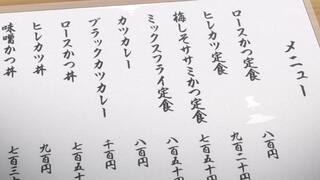 メニュー
ロースかつ定食 八百円
ヒレカツ定食 九百二十円
梅しそササミかつ定食 七百五十円
ミックスフライ定食 八百五十円
カツカレー 八百円
ブラックカツカレー 千百円
ロースかつ丼 七百五十円
ヒレカツ丼 九百円
味噌かつ丼 七百